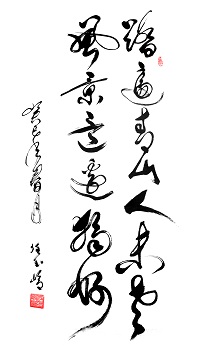 踏遍青山人未老
風景這邊獨好
癸巳